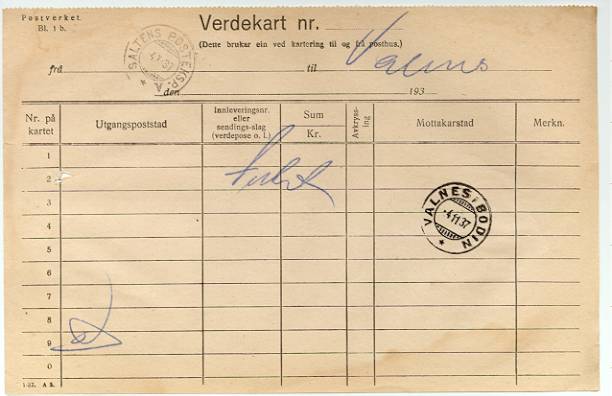 Postverket.
Bl. 1 b.
Verdekart nr.
(Dette brukar ein ved kartering til og frå posthus.)
SALTENS POSTEKSP. A.
4 11 37
frå til Valnes
den 193
Nr. på kartet
Utgangspoststad
Innleveringsnr. eller sendings-slag (verdepose o. l.)
Sum
Kr.
Avkryssing
Mottakarstad
Merkn.
1
2
3
VALNES I BODIN
-4 11 37
4
5
6
7
8
9
0
1-37. A S.